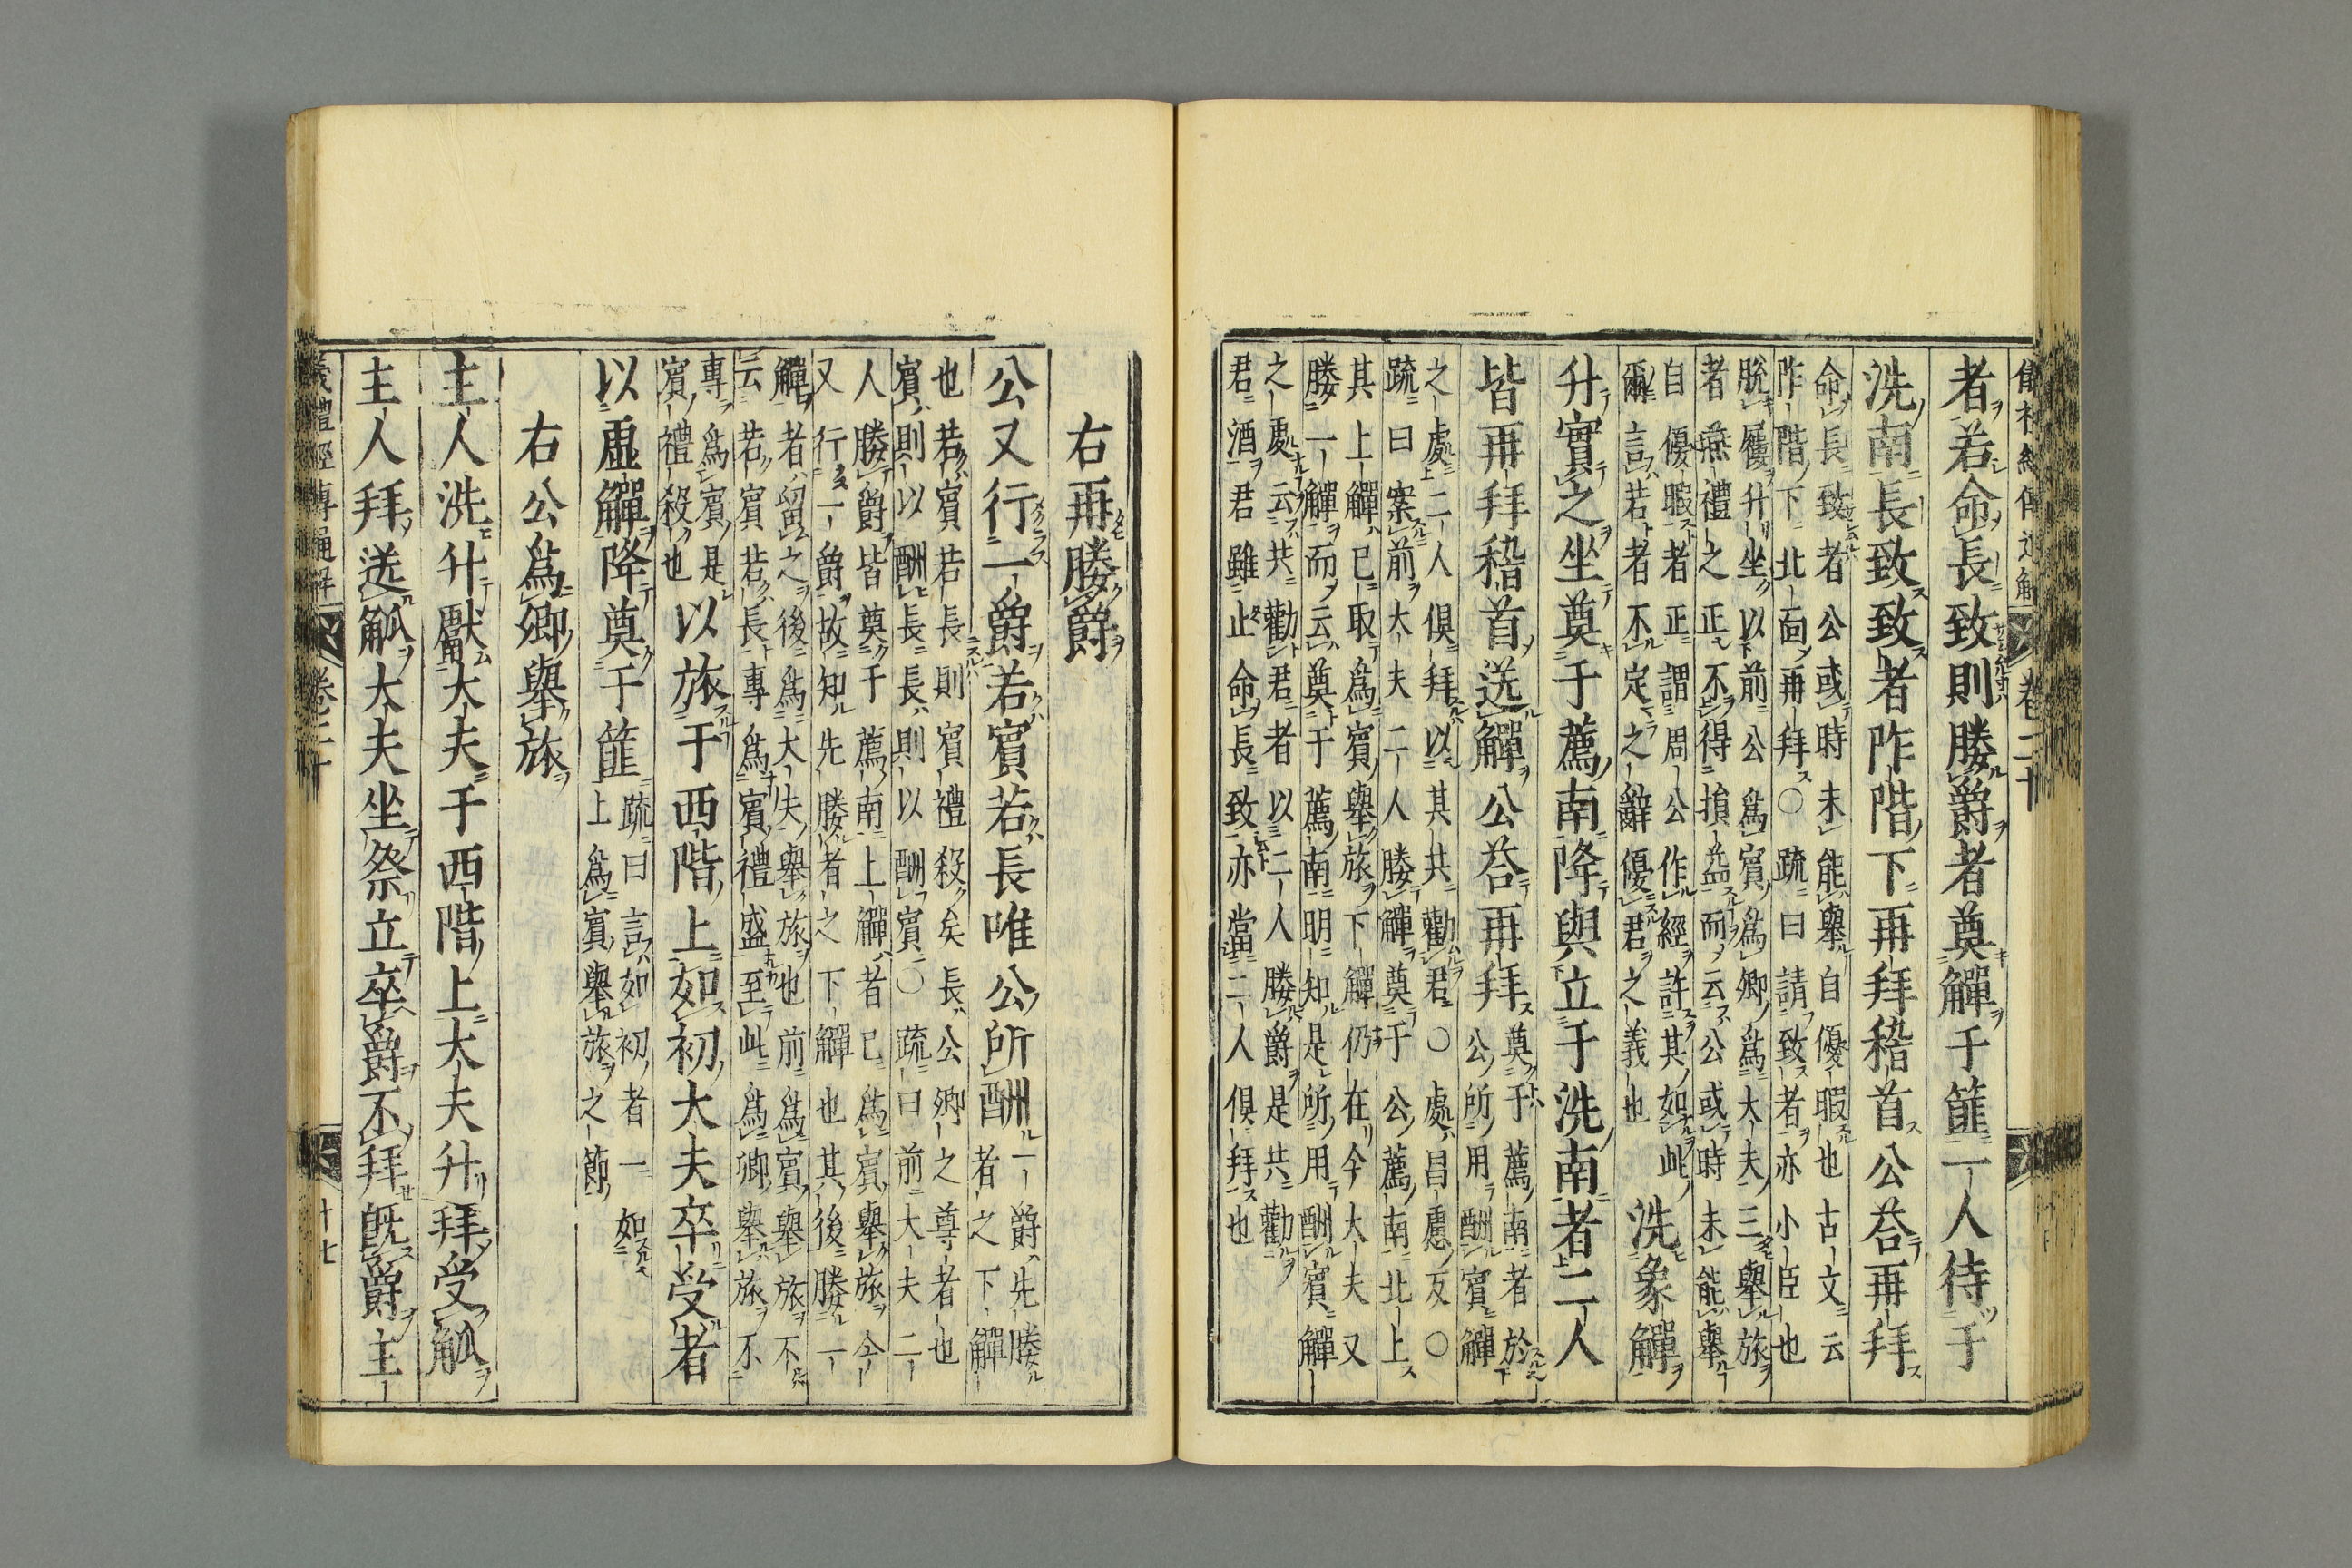 儀禮經傳通解 卷二十
者若命長致則媵爵者奠觶于篚一人待于
洗南長致致者阼階下再拜稽首公荅再拜
命長致者公或時未能舉自優暇也古文云
阼階下北面再拜○疏曰請致者亦小臣也
脫屨升坐以前公爲賓爲卿爲大夫三舉旅
者燕禮之正不得損益而云公或時未能舉
自優暇者正謂周公作經許其如此
爾言若者不定之辭優君之義也
洗象觶
升實之坐奠于薦南降與立于洗南者二人
皆再拜稽首送觶公荅再拜
奠于薦南者於
公所用酬賓觶
之處二人俱拜以其共勸君○處昌慮反○
疏曰案前大夫二人媵觶奠于公薦南北上
其上觶已取爲賓舉旅下觶仍在今大夫又
媵一觶而云奠于薦南明知是所用酬賓觶
之處云共勸君者以二人媵爵是共勸
君酒君雖止命長致亦當二人俱拜也
右再媵爵
公又行一爵若賓若長唯公所酬
一爵先媵
者之下觶
也若賓若長則賓禮殺矣長公卿之尊者也
賓則以酬長長則以酬賓○疏曰前大夫二
人媵爵皆奠于薦南上觶者已爲賓舉旅今
又行一爵故知先媵者之下觶也其後媵一
觶者留之後爲大夫舉旅也前爲賓舉旅不
云若賓若長專爲賓禮盛至此爲卿舉旅不
專爲賓是
賓禮殺也
以旅于西階上如初大夫卒受者
以虛觶降奠于篚
疏曰言如初者一如
上爲賓舉旅之節
右公爲卿舉旅
主人洗升獻大夫于西階上大夫升拜受觚
主人拜送觚大夫坐祭立卒爵不拜旣爵主
儀禮經傳通解 卷二十 十七